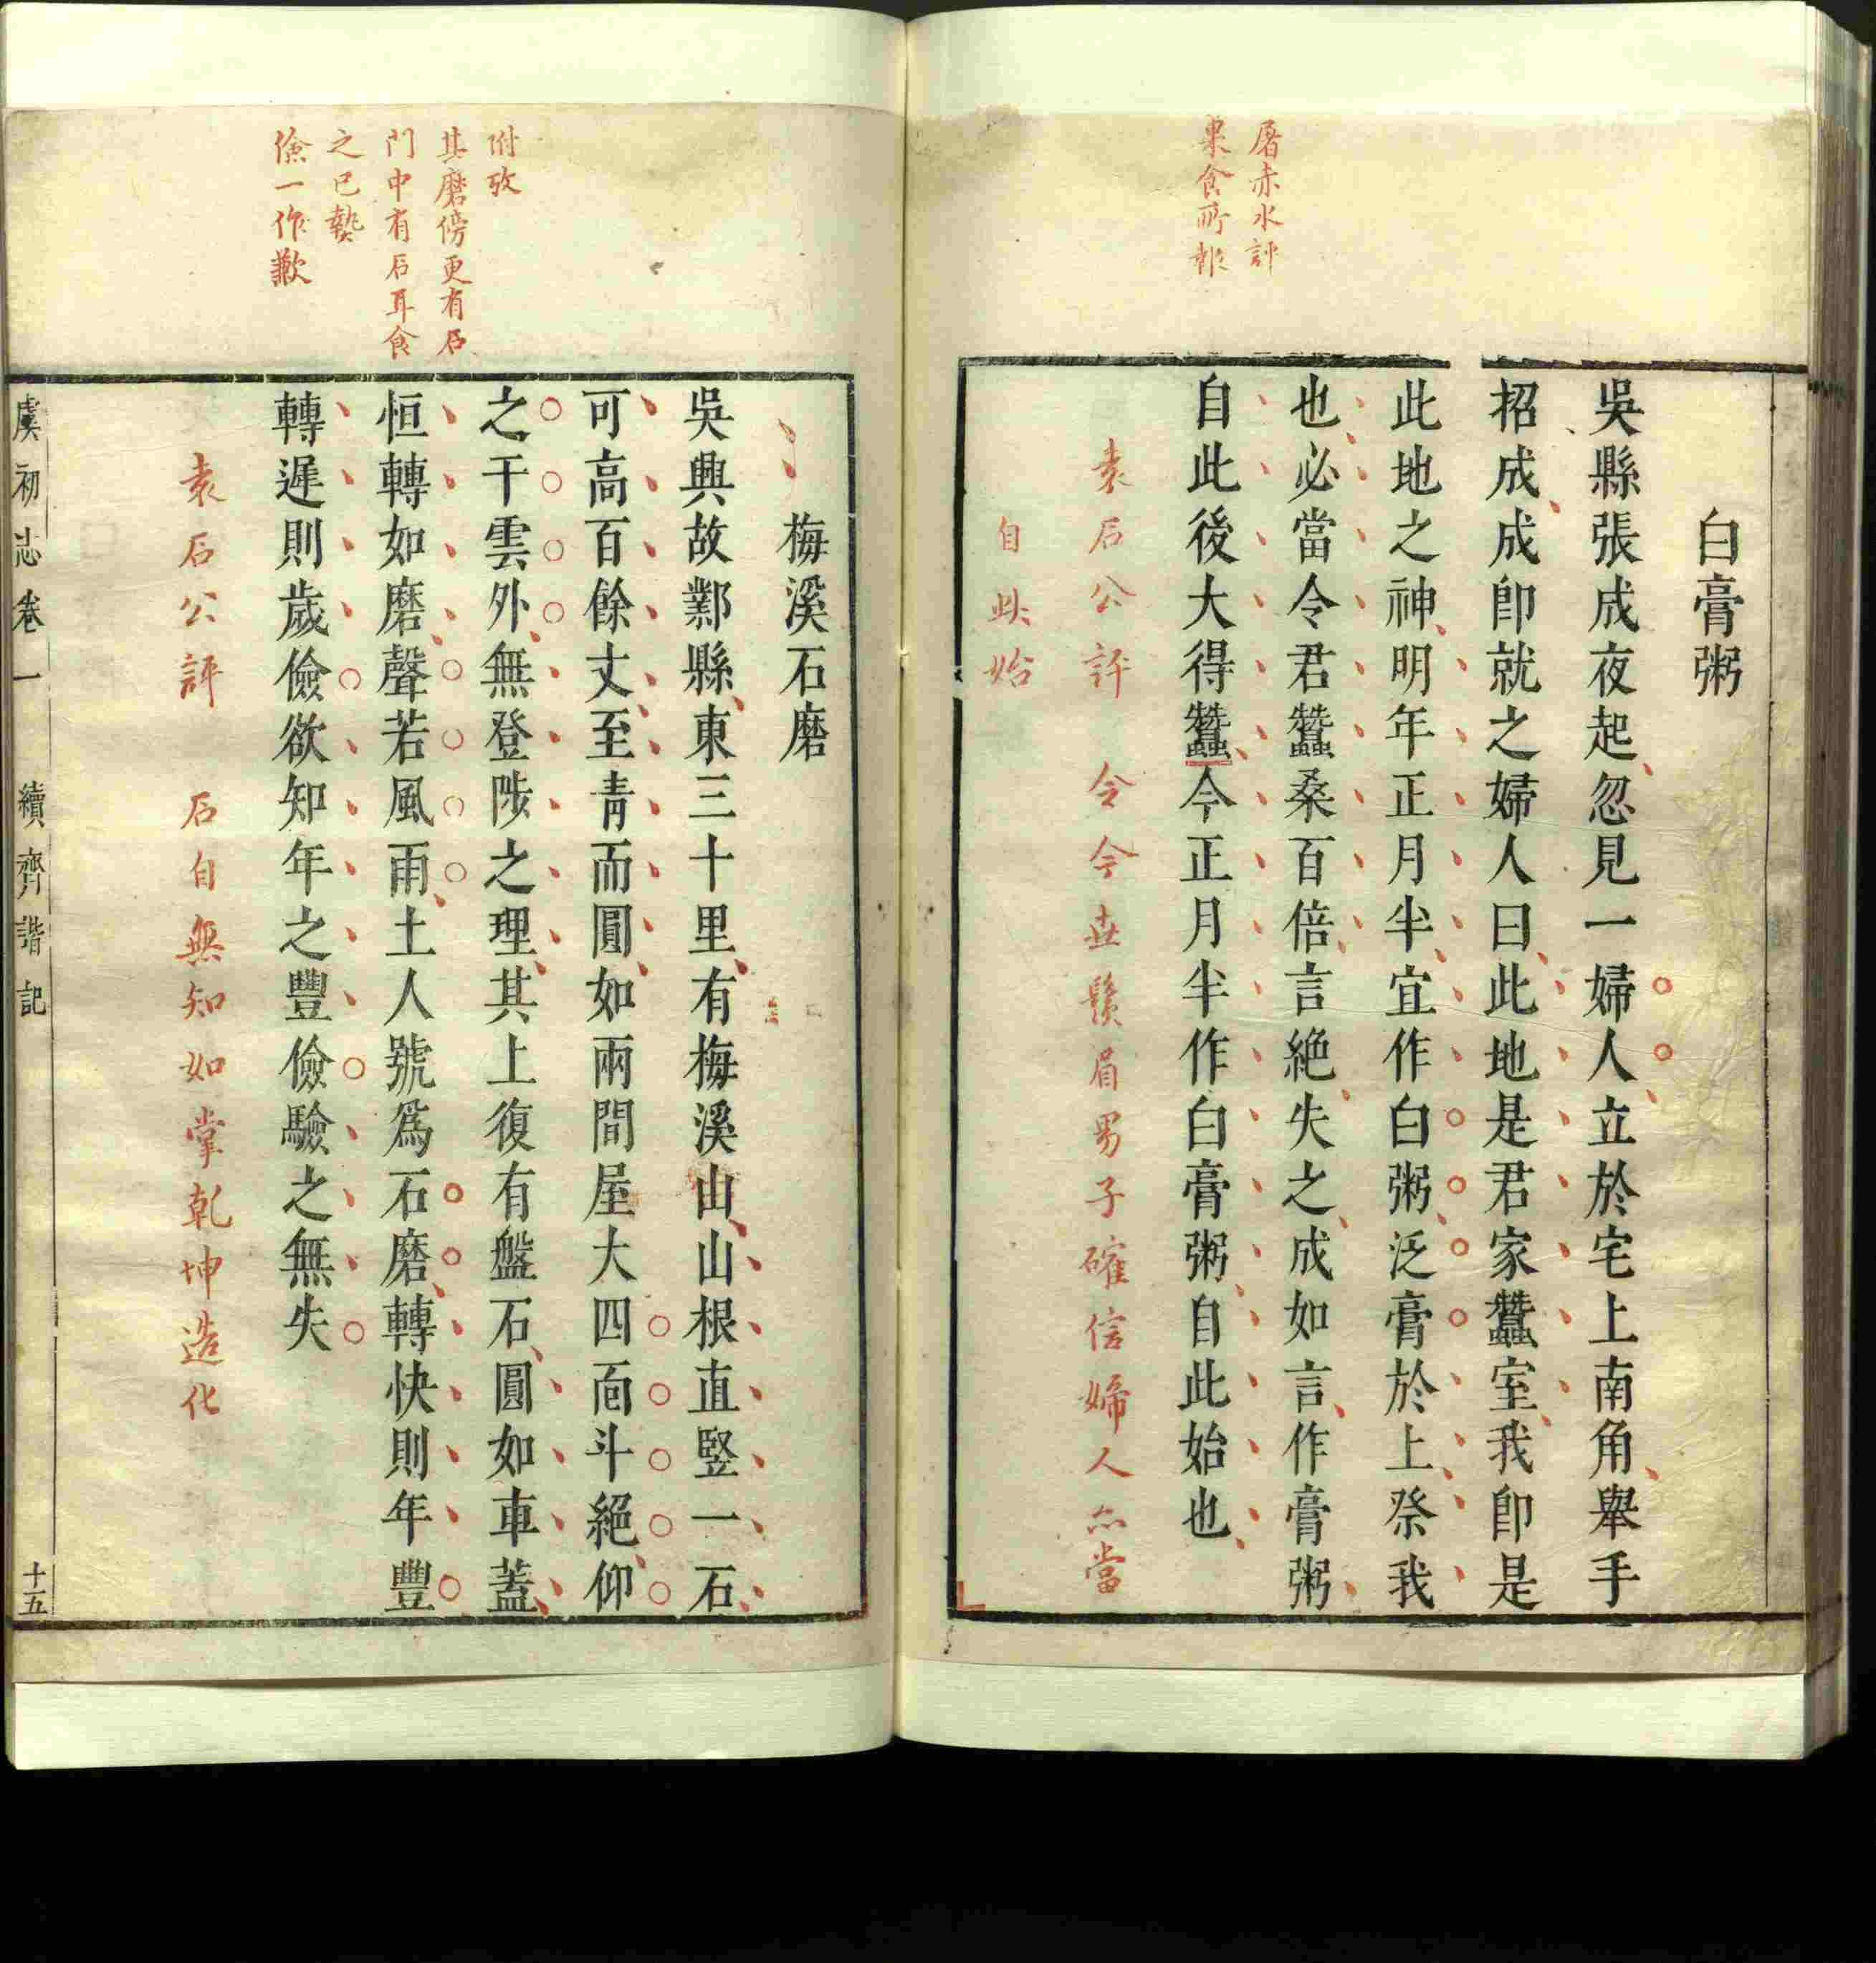 屠赤水評
果食所報
白膏粥
吳縣張成夜起忽見一婦人立於宅上南角舉手
招成成卽就之婦人曰此地是君家蠶室我卽是
此地之神明年正月半宜作白粥泛膏於上祭我
也必當令君蠶桑百倍言絕失之成如言作膏粥
自此後大得蠶今正月半作白膏粥自此始也
袁石公評　令今世鬚眉男子確信婦人亦當
自此始
附攷
其磨傍更有石
門中有石耳食
之已熱
儉一作歉
梅溪石磨
吳興故鄣縣東三十里有梅溪山山根直竪一石
可高百餘丈至靑而圓如兩間屋大四面斗絕仰
之干雲外無登陟之理其上復有盤石圓如車蓋
恒轉如磨聲若風雨土人號爲石磨轉快則年豐
轉遲則歲儉欲知年之豐儉驗之無失
袁石公評　石自無知如掌乾坤造化
虞初志卷一　續齊諧記　十五